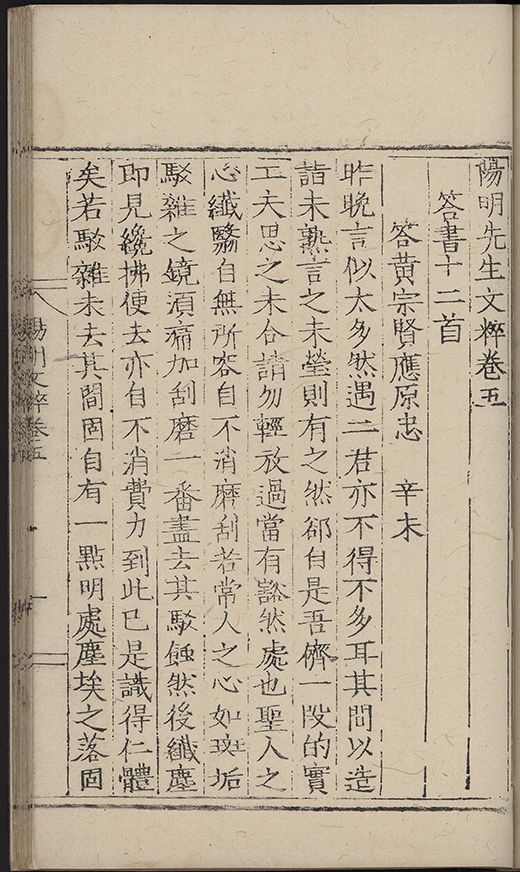 陽明先生文粹卷五
答書十二首
答黃宗賢應原忠 辛未
昨晚言似太多然遇二君亦不得不多耳其間以造
詣未熟言之未瑩則有之然郤自是吾儕一段的實
工夫思之未合請勿輕放過當有豁然處也聖人之
心纖翳自無所容自不消磨刮若常人之心如斑垢
駁雜之鏡須痛加刮磨一番盡去其駁蝕然後纖塵
即見纔拂便去亦自不消費力到此已是識得仁體
矣若駁雜未去其間固自有一點明處塵埃之落固
陽明文粹卷五